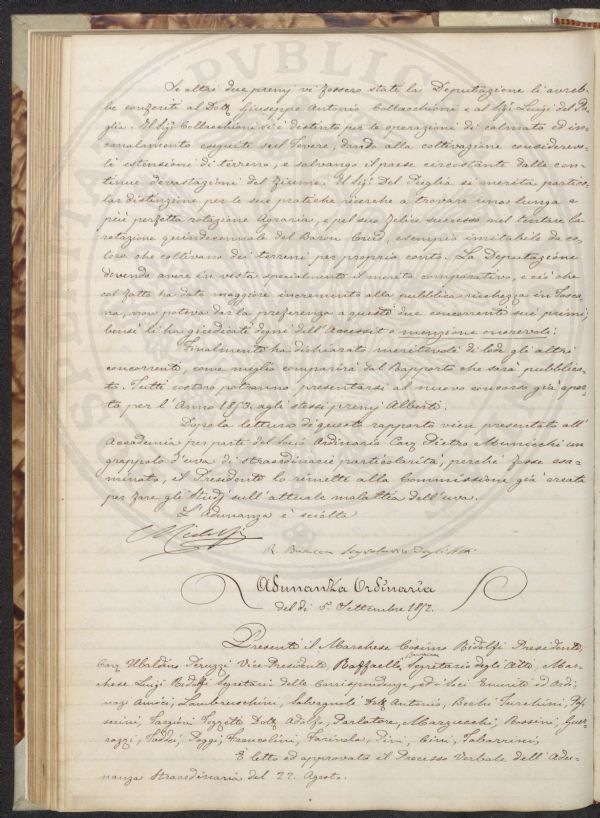 Se altri due premj vi fossero stati la Deputazione li avreb-
be conferiti al Dott. Giuseppe Antonio Collacchioni e al Sig. Luigi del Pu-
glia. Il Sig. Collacchioni si è distinto per le operazioni di colmate ed in-
canalamento eseguite sul Tevere, dando alla coltivazione considerevo-
li estensioni di terreno, e salvando il paese circostante dalle con-
tinue devastazioni del fiume. Il Sig. Del Puglia si merita partico-
lar distinzione per le sue pratiche ricerche a trovare una lunga e
più perfetta rotazione Agraria, e pel suo felice successo nel tentare la
rotazione quindecennale del Baron Crud, esempio imitabile da co-
loro che coltivano dei terreni per proprio conto. La Deputazione
dovendo avere in vista specialmente il merito comparativo, e ciò che
col fatto ha dato maggiore incremento alla pubblica ricchezza in Tosca-
na, non poteva dar la preferenza a questi due concorrenti sui primi;
bensì li ha giudicati degni dell'Accessit o menzione onorevole.
Finalmente ha dichiarato meritevoli di lode gli altri
concorrenti, come meglio comparirà dal Rapporto che sarà pubblica-
to. Tutti costoro potranno presentarsi al nuovo concorso già aper-
to per l'Anno 1853. agli stessi premj Alberti.
Dopo la lettura di questo rapporto vien presentato all'
Accademia per parte del Socio Ordinario Cav. Pietro Municchi un
grappolo d'uva di straordinarie particolarità, perchè fosse esa-
minato, e il Presidente lo rimette alla Commissione già creata
per fare gli Studj sull'attuale malattia dell'uva.
L'Adunanza è sciolta
C Ridolfi
R. Busacca Segretario degli Atti
Adunanza Ordinaria
del dì 5. Settembre 1852.
Presenti il Marchese Cosimo Ridolfi Presidente,
Cav. Ubaldino Peruzzi Vice-Presidente, Raffaelle Busacca Segretario degli Atti, Mar-
chese Luigi Ridolfi Segretario delle Corrispondenze, ed i Soci Emeriti ed Ordi-
narj Amici, Lambruschini, Salvagnoli Dott. Antonio, Bechi, Turchini, Pas-
serini, Targioni Tozzetti Dott. Adolfo, Parlatore, Marzucchi, Rossini, Guer-
razzi, Taddei, Poggi, Francolini, Farinola, Pini, Cini, Tabarrini,
È letto ed approvato il Processo Verbale dell'Adu-
nanza Straordinaria del 22. Agosto.